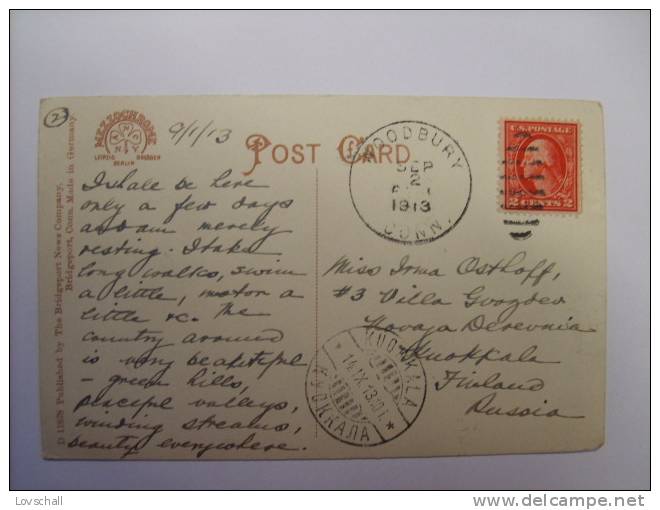 2
MEZZOCHROME
LEIPZIG DRESDEN
BERLIN
9/1/13
POST CARD
WOODBURY
SEP
2
1913
CONN.
U.S. POSTAGE
2 CENTS 2
D 11878 Published by The Bridgeport News Company,
Bridgeport, Conn. Made in Germany
I shall be here
only a few days
and am merely
resting. I take
long walks, swim
a little, motor a
little &c. The
country around
is very beautiful
– green hills,
peaceful valleys,
winding streams,
beauty everywhere.
Miss Irma Osthoff,
#3 Villa Gvozdev
Novaja Derevnia
Kuokkala
Finland
Russia
KUOKKALA
14.IX.13
КУОККАЛА
Lovschall
delcampe.net